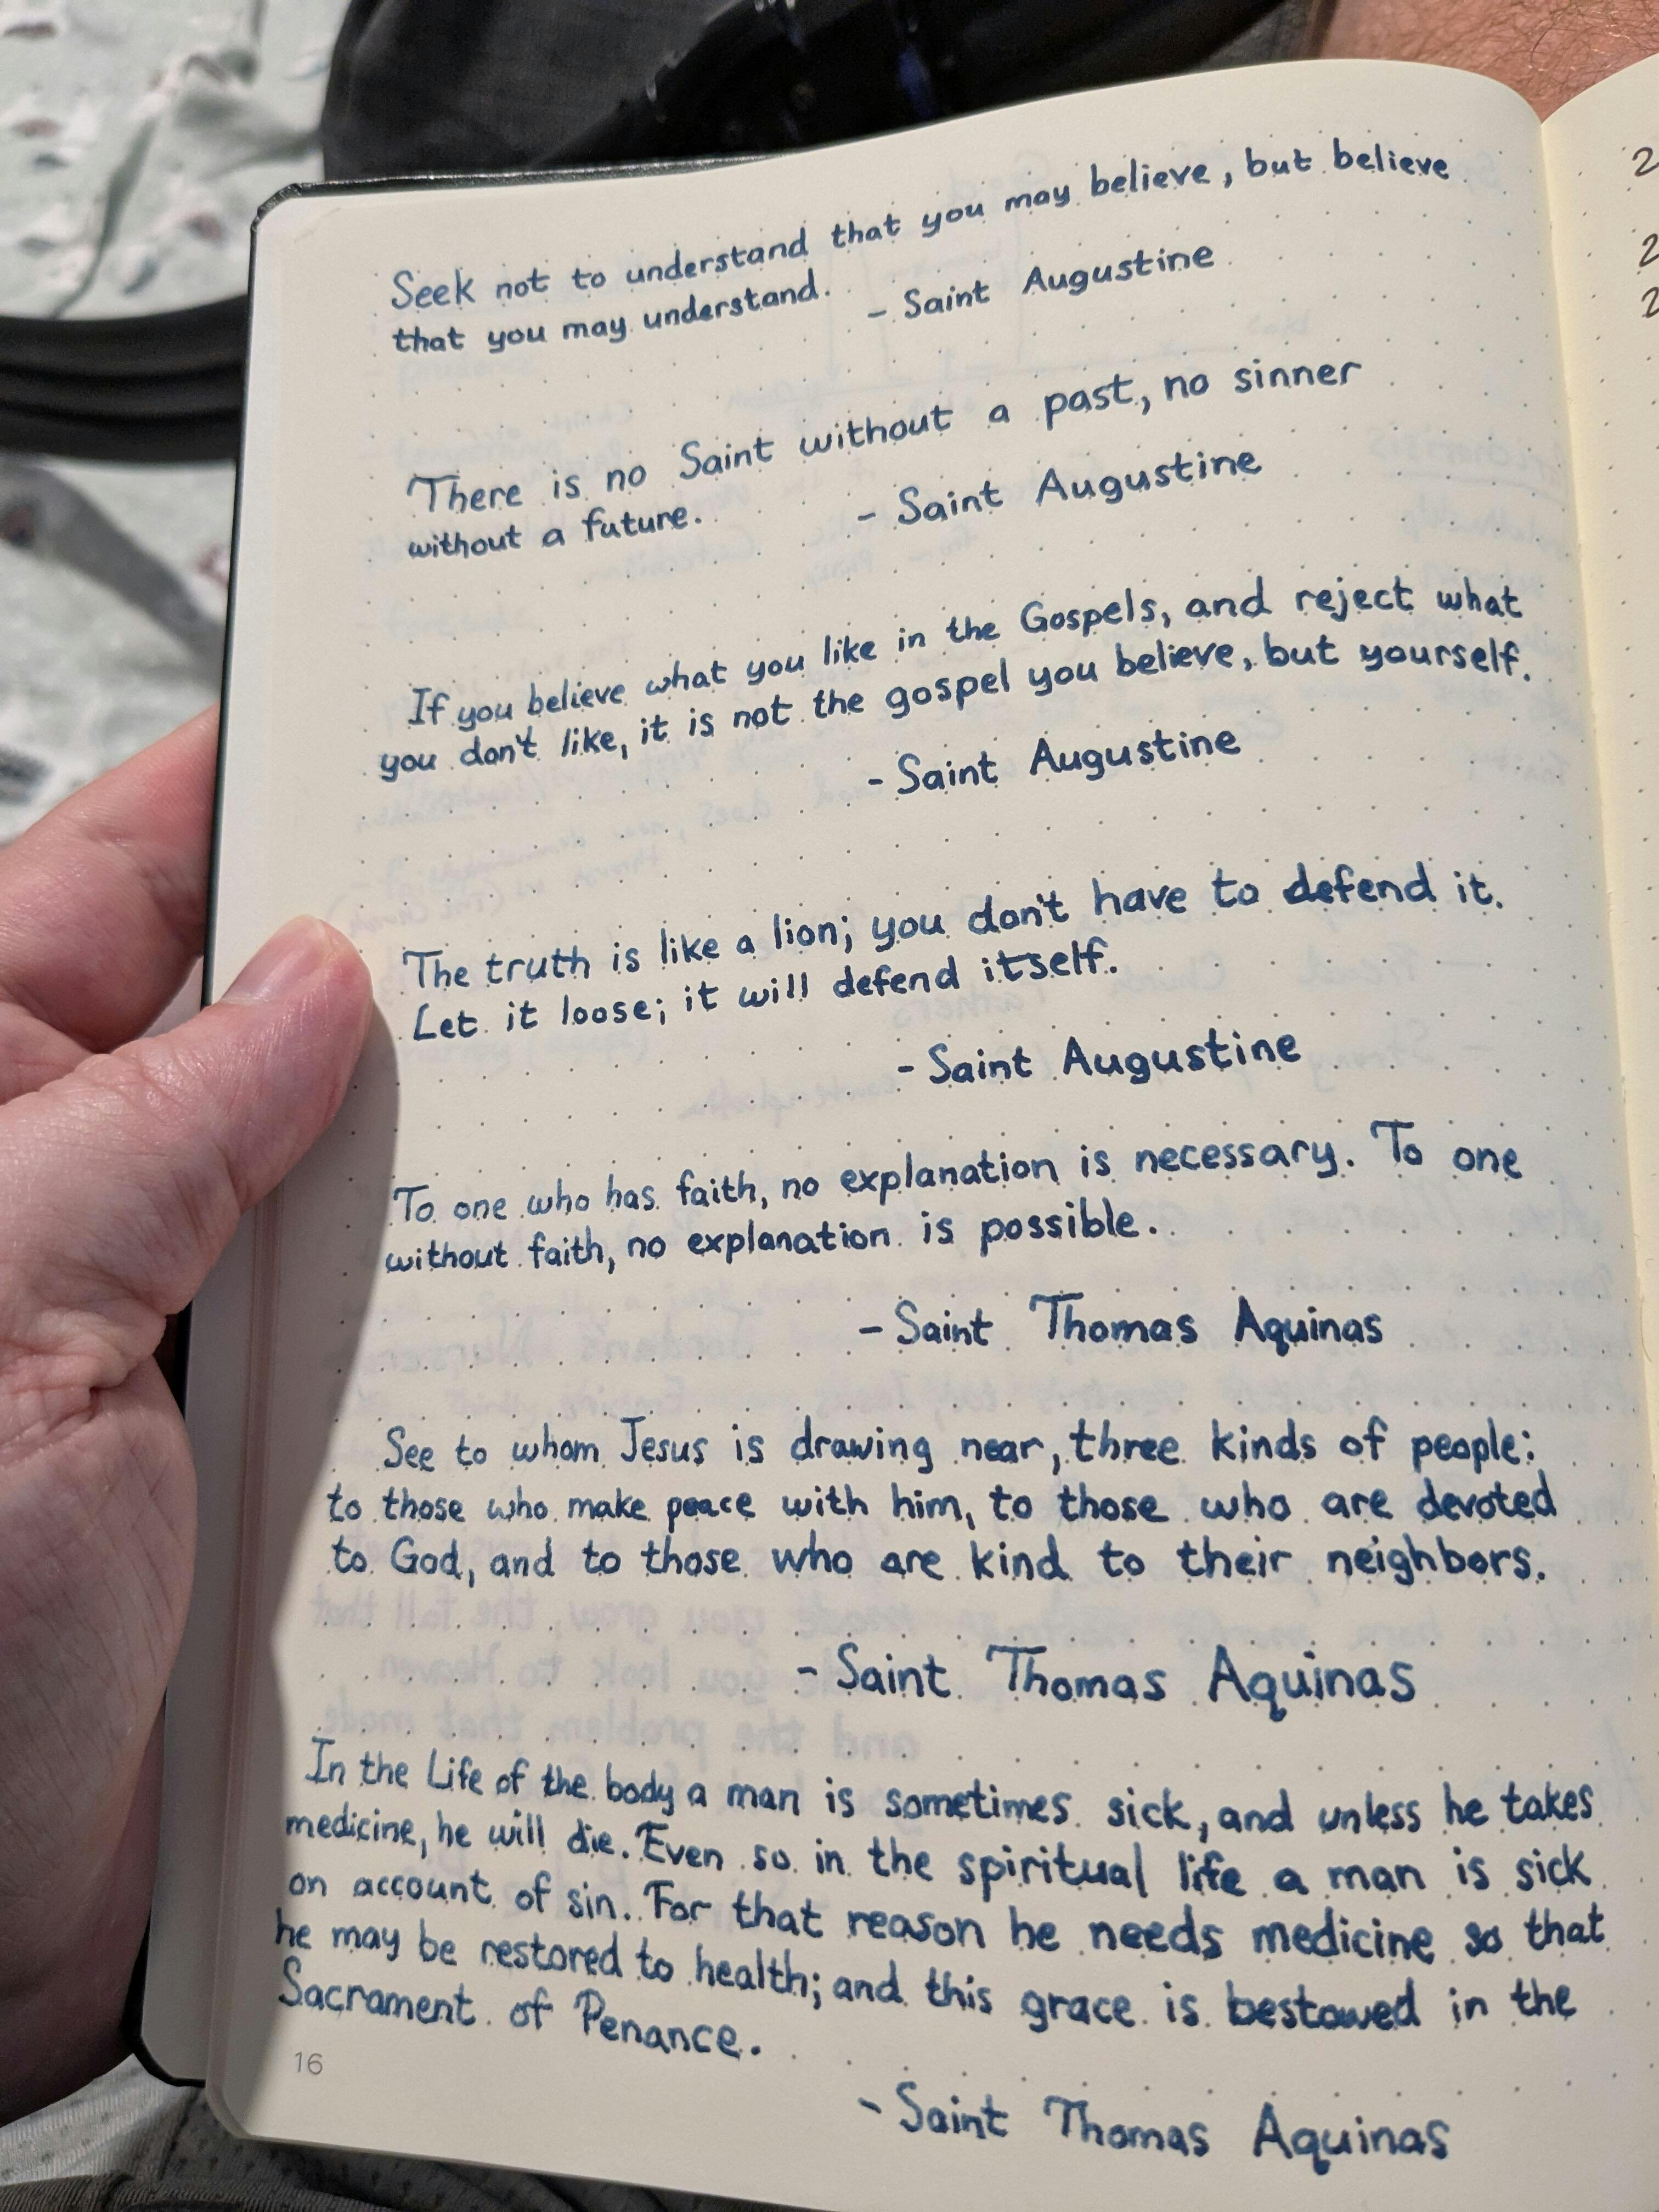 Seek not to understand that you may believe, but believe
that you may understand.
- Saint Augustine
There is no Saint without a past, no sinner
without a future.
- Saint Augustine
If you believe what you like in the Gospels, and reject what
you don't like, it is not the gospel you believe, but yourself.
- Saint Augustine
The truth is like a lion; you don't have to defend it.
Let it loose; it will defend itself.
- Saint Augustine
To one who has faith, no explanation is necessary. To one
without faith, no explanation is possible.
- Saint Thomas Aquinas
See to whom Jesus is drawing near, three kinds of people:
to those who make peace with him, to those who are devoted
to God, and to those who are kind to their neighbors.
- Saint Thomas Aquinas
In the Life of the body a man is sometimes sick, and unless he takes
medicine, he will die. Even so in the spiritual life a man is sick
on account of sin. For that reason he needs medicine so that
he may be restored to health; and this grace is bestowed in the
Sacrament of Penance.
16
- Saint Thomas Aquinas
2
2
2